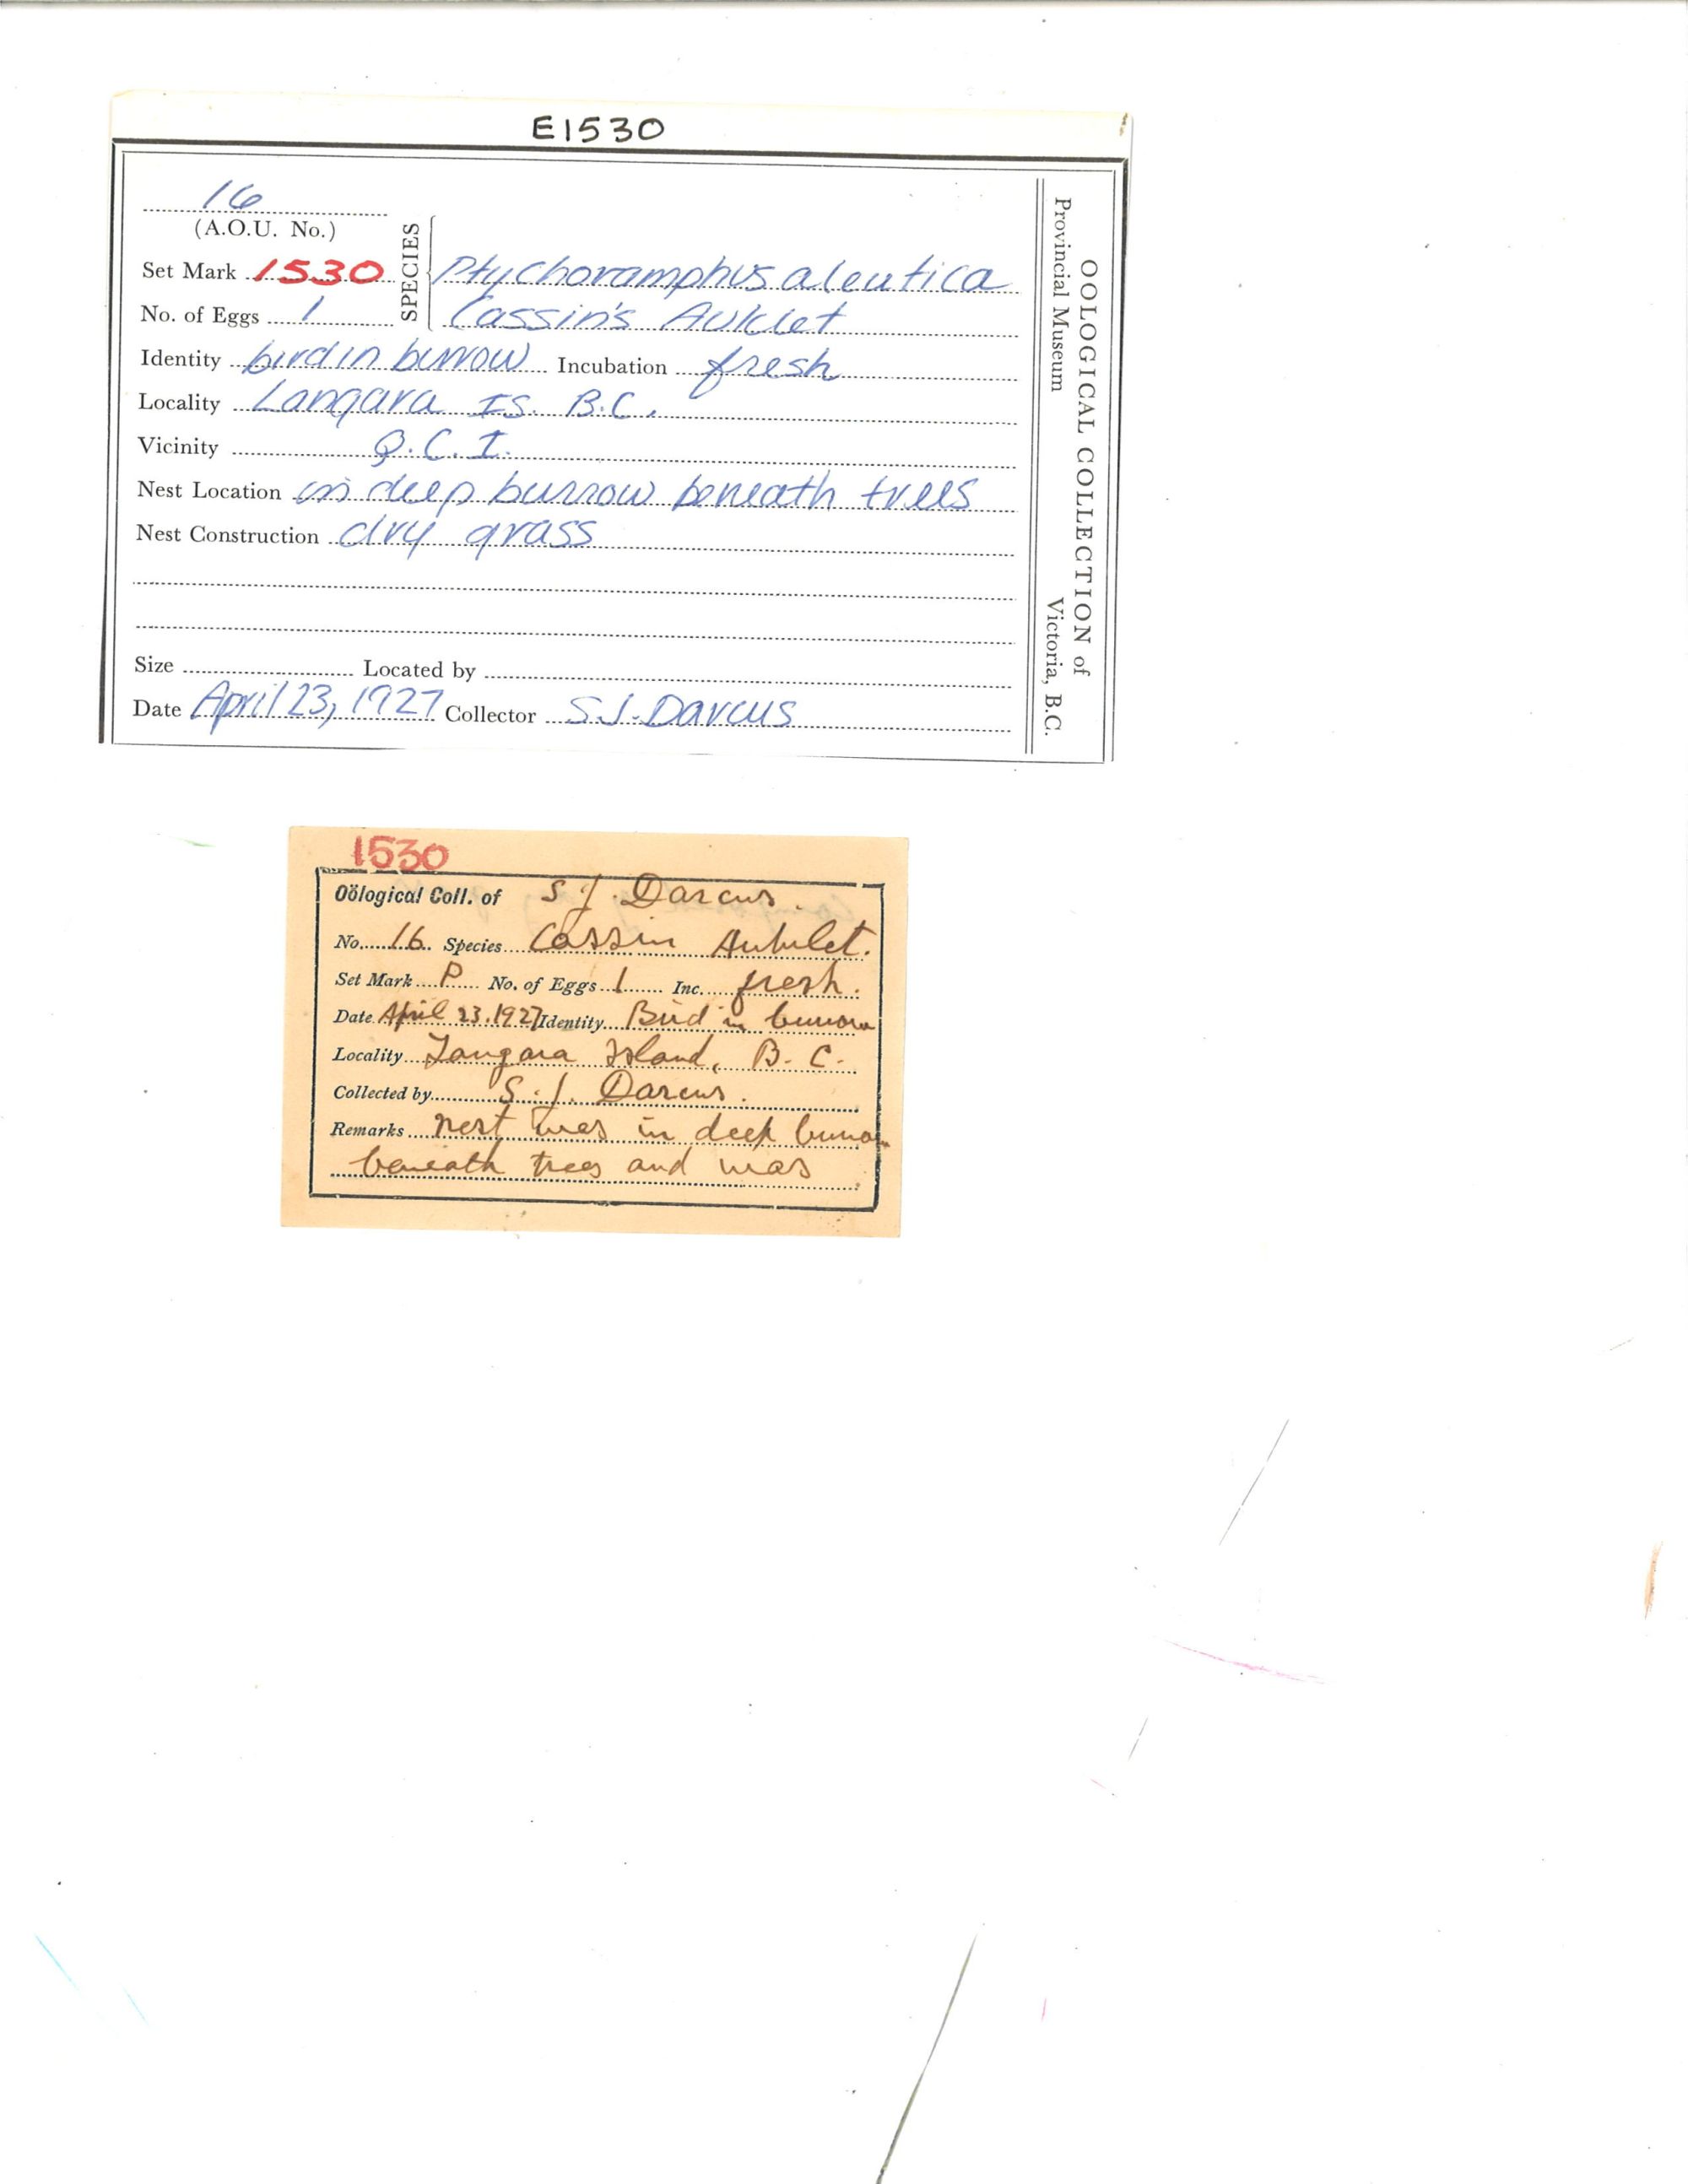 E1530
16
(A.O.U. No.)
SPECIES
Set Mark 1530 Ptychoramphus aleutica
No. of Eggs 1 Cassin's Auklet
Identity bird in burrow Incubation fresh
Locality Langara Is. B.C.
Vicinity Q.C.I.
Nest Location in deep burrow beneath trees
Nest Construction dry grass
Size Located by
Date April 23, 1927 Collector S.J. Darcus
OOLOGICAL COLLECTION of
Provincial Museum Victoria, B.C.
1530
Oölogical Coll. of S. J. Darcus.
No. 16. Species Cassin Auklet.
Set Mark P No. of Eggs 1 Inc. fresh.
Date April 23. 1927 Identity Bird in burrow
Locality Langara Island, B. C.
Collected by S. J. Darcus.
Remarks nest was in deep burrow
beneath trees and was